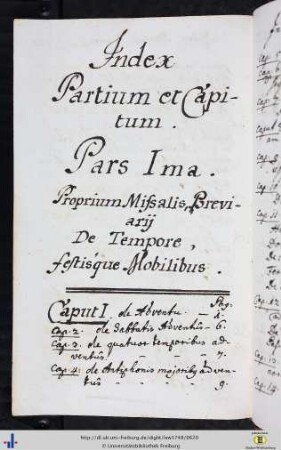 Index
Partium et Capi-
tum.
Pars Ima.
Proprium Missalis, Brevi-
arij
De Tempore,
festisque Mobilibus.
Pag.
Caput I. de Adventu. - - 1.
Cap. 2. de Sabbatis Adventûs - 6.
Cap. 3. de quatuor temporibus ad-
ventûs. - - 7.
Cap. 4. de Antiphonis majoribus adven-
tûs - - - - 9.
© Universitätsbibliothek Freiburg